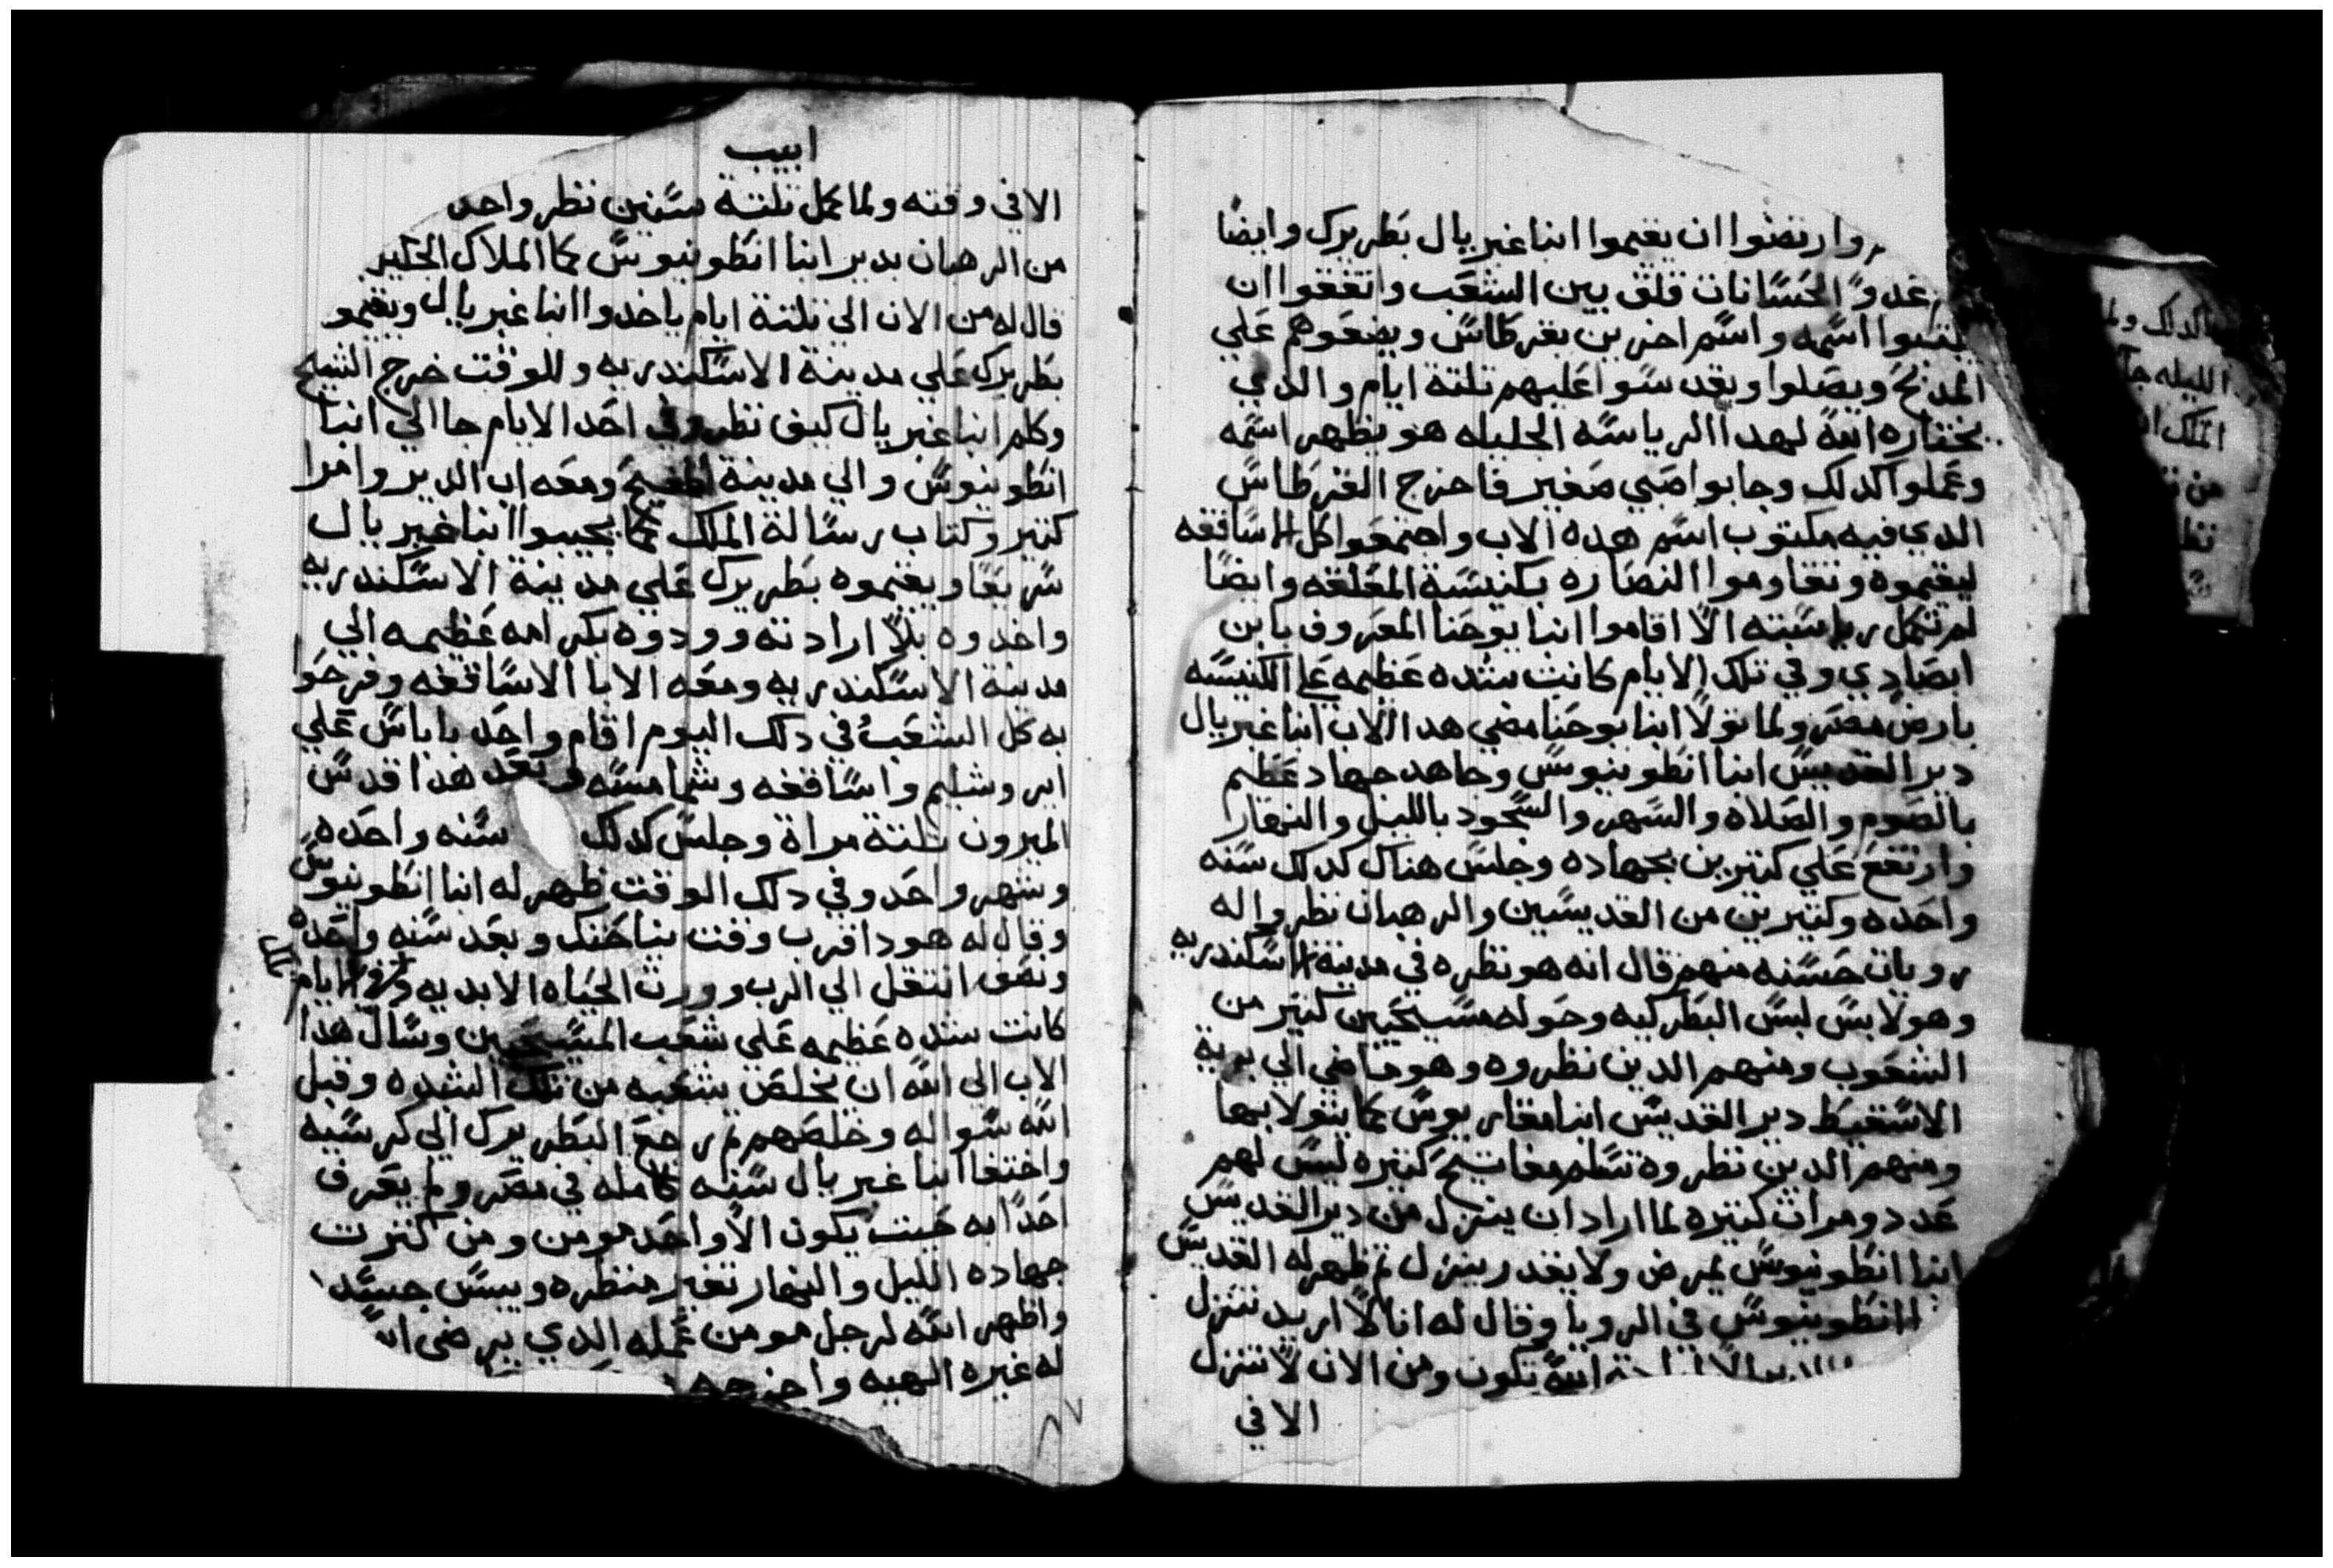 وارتضوا ان يقيموا انبا غبريال بطريرك وايضا
عدو الحسانات قلق بين الشعب واتفقوا ان
يكتبوا اسمه واسم اخرين بقرطاس ويضعوهم علي
المدبح ويصلوا ويقدسوا عليهم تلتة ايام والذي
يختاره الله لهدا الرياسه الجليله هو يظهر اسمه
وعملوا كدلك وجابوا صبي صغير فاخرج القرطاس
الدي فيه مكتوب اسم هده الاب واجتمعوا كل الاساقفه
ليقيموه وتقاوموا النصاره بكنيسة المعلقه وايضا
لم تكمل رياسته الا اقاموا انبا يوحنا المعروف بابن
ابصادي وفي تلك الايام كانت شده عظيمه علي الكنيسه
بارض مصر ولما تولا انبا يوحنا مضي هدا الاب انبا غبريال
دير القديس انبا انطونيوس وجاهد جهاد عظيم
بالصوم والصلاه والسهر والسجود بالليل والنهار
وارتفع علي كتيرين بجهاده وجلس هناك كدلك سنه
واحده وكتيرين من القديسين والرهبان نظروا له
رويات حسنه منهم قال انه هو نظره في مدينة الاسكندريه
وهو لابس لبس البطركيه وحوله مسيحيين كتير من
الشعوب ومنهم الدين نظروه وهو ماضي الي برية
الاسقيط دير القديس انبا مقاريوس كما يتولا بيها
ومنهم الدين نظروه تسلم مفاتيح كتيره ليس لهم
عدد ومرات كتيره لما اراد ان ينزل من دير القديس
انبا انطونيوس يمرض ولا يقدر ينزل ثم ظهر له القديس
انطونيوس في الرويا وقال له انا لا اريد تنزل
الله تكون ومن الان لا تنزل
الا في
ابيب
الا في وقته ولما كمل تلتة سنين نظر واحد
من الرهبان بدير انبا انطونيوس كما الملاك الجليل
قال له من الان الي تلتة ايام ياخدوا انبا غبريال ويقيمو
بطريرك علي مدينة الاسكندريه وللوقت خرج الشيخ
وكلم انبا غبريال كيف نظر وفي احد الايام جا الي انبا
انطونيوس والي مدينة اطفيح ومعه اب الدير وامرا
كتير وكتاب رسالة الملك كما يجيبوا انبا غبريال
سريعا ويقيموه بطريرك علي مدينة الاسكندريه
واخدوه بلا ارادته وودوه بكرامه عظيمه الي
مدينة الاسكندريه ومعه الابا الاساقفه وفرحوا
به كل الشعب في دلك اليوم اقام واحد باباس علي
ايروشليم واساقفه وشمامسه وبعد هدا قدس
الميرون تلتة مراة وجلس كدلك سنه واحده
وشهر واحد وفي دلك الوقت ظهر له انبا انطونيوس
وقال له هودا قرب وقت بناختك وبعد سنه واحده
ونصف انتقل الي الرب وورت الحياه الابديه وفي الايام
كانت شده عظيمه علي شعب المسيحيين وسال هدا
الاب الي الله ان يخلص شعبه من تلك الشده وقبل
الله سواله وخلصهم ثم رجع البطريرك الي كرسيه
واختفا انبا غبريال سنه كامله في مصر ولم يعرف
احدا به حيت يكون الا واحد مومن ومن كترت
جهاده الليل والنهار تغير منظره ويبس جسده
واظهر الله لرجل مومن عمله الدي يرضي الله
له غيره الهيه واخرجه